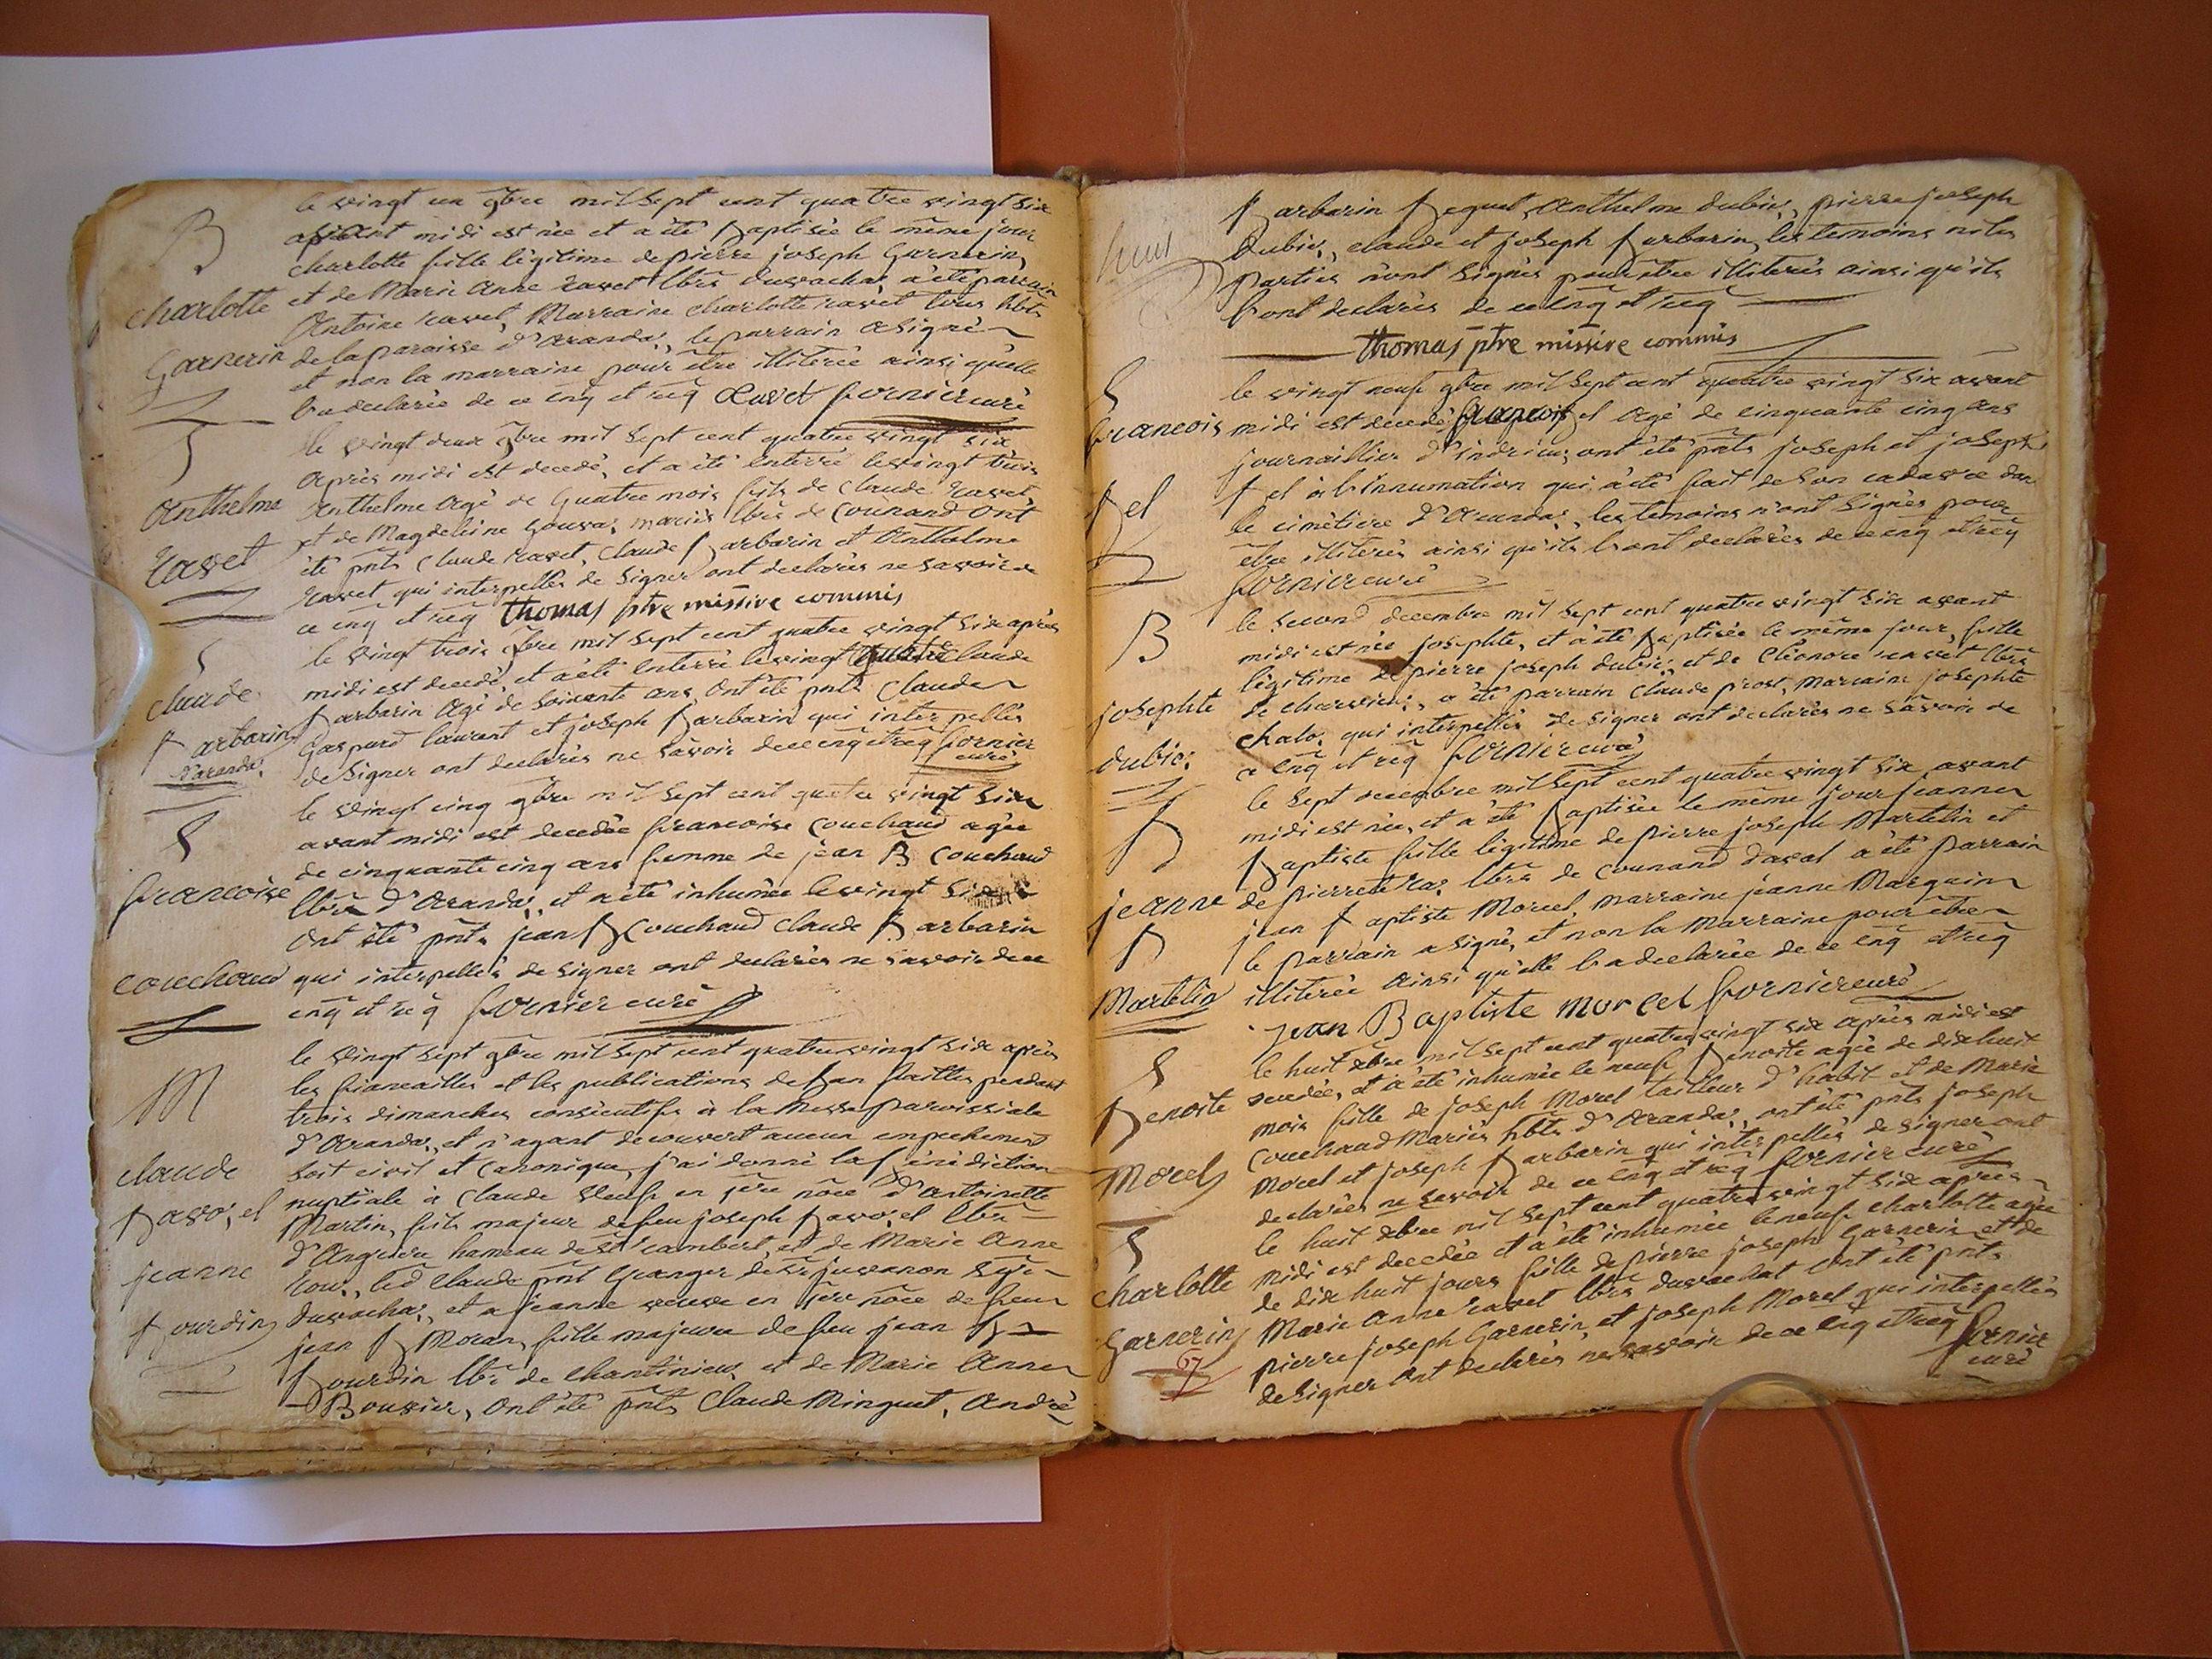 B
charlotte
Garnerin
le vingt un 9bre mil sept cent quatre vingt six
avant midi est née et a été Baptisée le même jour
charlotte fille légitime de pierre joseph Garnerin,
et de Marie Anne ravet lbrs duvachat a été parrain
Antoine ravet, Marraine charlotte ravet tous hbts
de la paroisse d'arandas, le parrain a signé
et non la marraine pour être illiterée ainsi qu'elle
l'a declarée de ce enq et req Ravet fornier curé
S
Anthelme
ravet
le vingt deux 9bre mil sept cent quatre vingt six
après midi est decedé, et a été enterré le vingt trois
Anthelme agé de quatre mois fils de claude ravet,
et de Magdeleine Gouvas mariés lbrs de counand ont
été pnts claude ravet, claude Barbarin et Anthelme
ravet qui interpellés de signer ont declarés ne savoir de
ce enq et req thomas ptre missire commis
S
claude
Barbarin
d'arandas
le vingt trois 9bre mil sept cent quatre vingt six après
midi est decedé, et a été enterré le vingt quatre claude
Barbarin agé de soixante ans, ont été pnts claude
Gaspard laurent et joseph Barbarin qui interpellés
de signer ont declarés ne savoir de ce enq et req fornier
curé
S
francoise
couchoud
le vingt cinq 9bre mil sept cent quatre vingt six
avant midi est decedée francoise couchoud agée
de cinquante cinq ans femme de jean B couchoud
lbr d'Arandas, et a été inhumée le vingt six
ont été pnts jean B couchoud claude Barbarin
qui interpellés de signer ont declarés ne savoir de ce
enq et req fornier curé
M
claude
Bavozel
jeanne
Bourdin
le vingt sept 9bre mil sept cent quatre vingt six après
les fiancailles et les publications de ban faittes pendant
trois dimanches consécutifs à la Messe paroissiale
d'Arandas, et n'ayant decouvert aucun empechement
soit civil et canonique, j'ai donné la Bénédiction
nuptiale à claude veuf en 1ère nôce d'antoinette
Martin, fils majeur de feu joseph Bavozel lbr
d'Angriere hameau de st rambert, et de Marie Anne
roux, led claude pnt Granger de sr juvanon sgr
duvachat, et a jeanne veuve en 1ère nôce de feu
jean B Moran, fille majeure de feu jean B
Bourdin lbr de chantinieu, et de Marie Anne
Bouvier, ont été pnts claude Minguet, André
huit
Barbarin Beguet, Anthelme dubie, pierre joseph
dubie, claude et joseph Barbarin, les temoins ni les
parties n'ont signés pour être illiterés ainsi qu'ils
l'ont declarés de ce enq et req
thomas ptre missire commis
S
francois
Bel
le vingt neuf 9bre mil sept cent quatre vingt six avant
midi est decedé francois Bel agé de cinquante cinq ans
journaillier d'indrieu, ont été pnts joseph et joseph
Bel à l'innumation qui a été fait de son cadavre dan
le cimetiere d'Arandas, les temoins n'ont signés pour
être illiterés ainsi qu'ils l'ont declarés de ce enq et req
fornier curé
B
josephte
dubie
le second decembre mil sept cent quatre vingt six avant
midi est née josephte, et a été Baptisée le même jour, fille
légitime de pierre joseph dubie, et de Eléonore ravet lbrs
de charvieu, a été parrain claude prost, marraine josephte
chalo, qui interpellés de signer ont declarés ne savoir de
ce enq et req fornier curé
B
jeanne
B
Martelin
le sept decembre mil sept cent quatre vingt six avant
midi est née, et a été Baptisée le même jour jeanne
Baptiste fille légitime de pierre joseph Martelin et
de pierrete ras, lbrs de counand d'aval a été parrain
jean Baptiste Morcel, marraine jeanne Marquin
le parrain a signé, et non la Marraine pour être
illiterée ainsi qu'elle l'a declarée de ce enq et req
jean Baptiste morcel fornier curé
S
Benoite
Morel
le huit xbre mil sept cent quatre vingt six après midi est
decedée, et a été inhumée le neuf Benoite agée de dix huit
mois fille de joseph Morel tailleur d'habit et de Marie
couchoud Mariés hbts d'Arandas, ont été pnts joseph
Morel et joseph Barbarin qui interpellés de signer ont
declarés ne savoir de ce enq et req fornier curé
S
charlotte
Garnerin
67
le huit xbre mil sept cent quatre vingt six après
midi est decedée et a été inhumée le neuf charlotte agée
de dix huit jours fille de pierre joseph Garnerin et de
Marie Anne ravet lbrs duvachat ont été pnts
pierre joseph Garnerin, et joseph Morel qui interpellés
de signer ont declarés ne savoir de ce enq et req fornier
curé